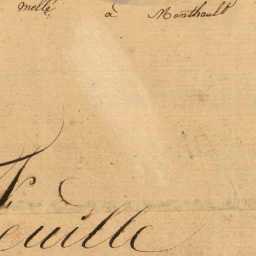 Mellé à Monthault
F
euille